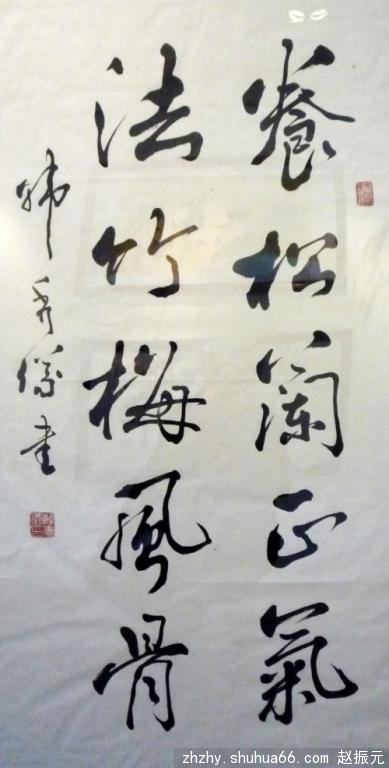 養松蘭正氣
法竹梅風骨
韩秀儀书
zhzhy.shuhua66.com 赵振元